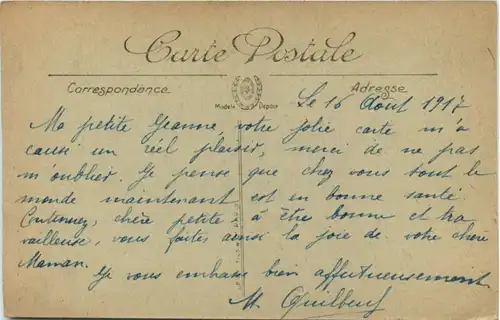 Carte Postale
Correspondance
Modèle Déposé
Adresse
Le 16 Aout 1917
Ma petite Jeanne, votre jolie carte m'a
causé un réel plaisir, merci de ne pas
m'oublier. Je pense que chez vous tout le
monde maintenant est en bonne santé
Continuez, chère petite à être bonne et tra
vailleuse, vous faites ainsi la joie de votre chère
Maman.
Je vous embrasse bien affectueusement
M. Quilbeuf